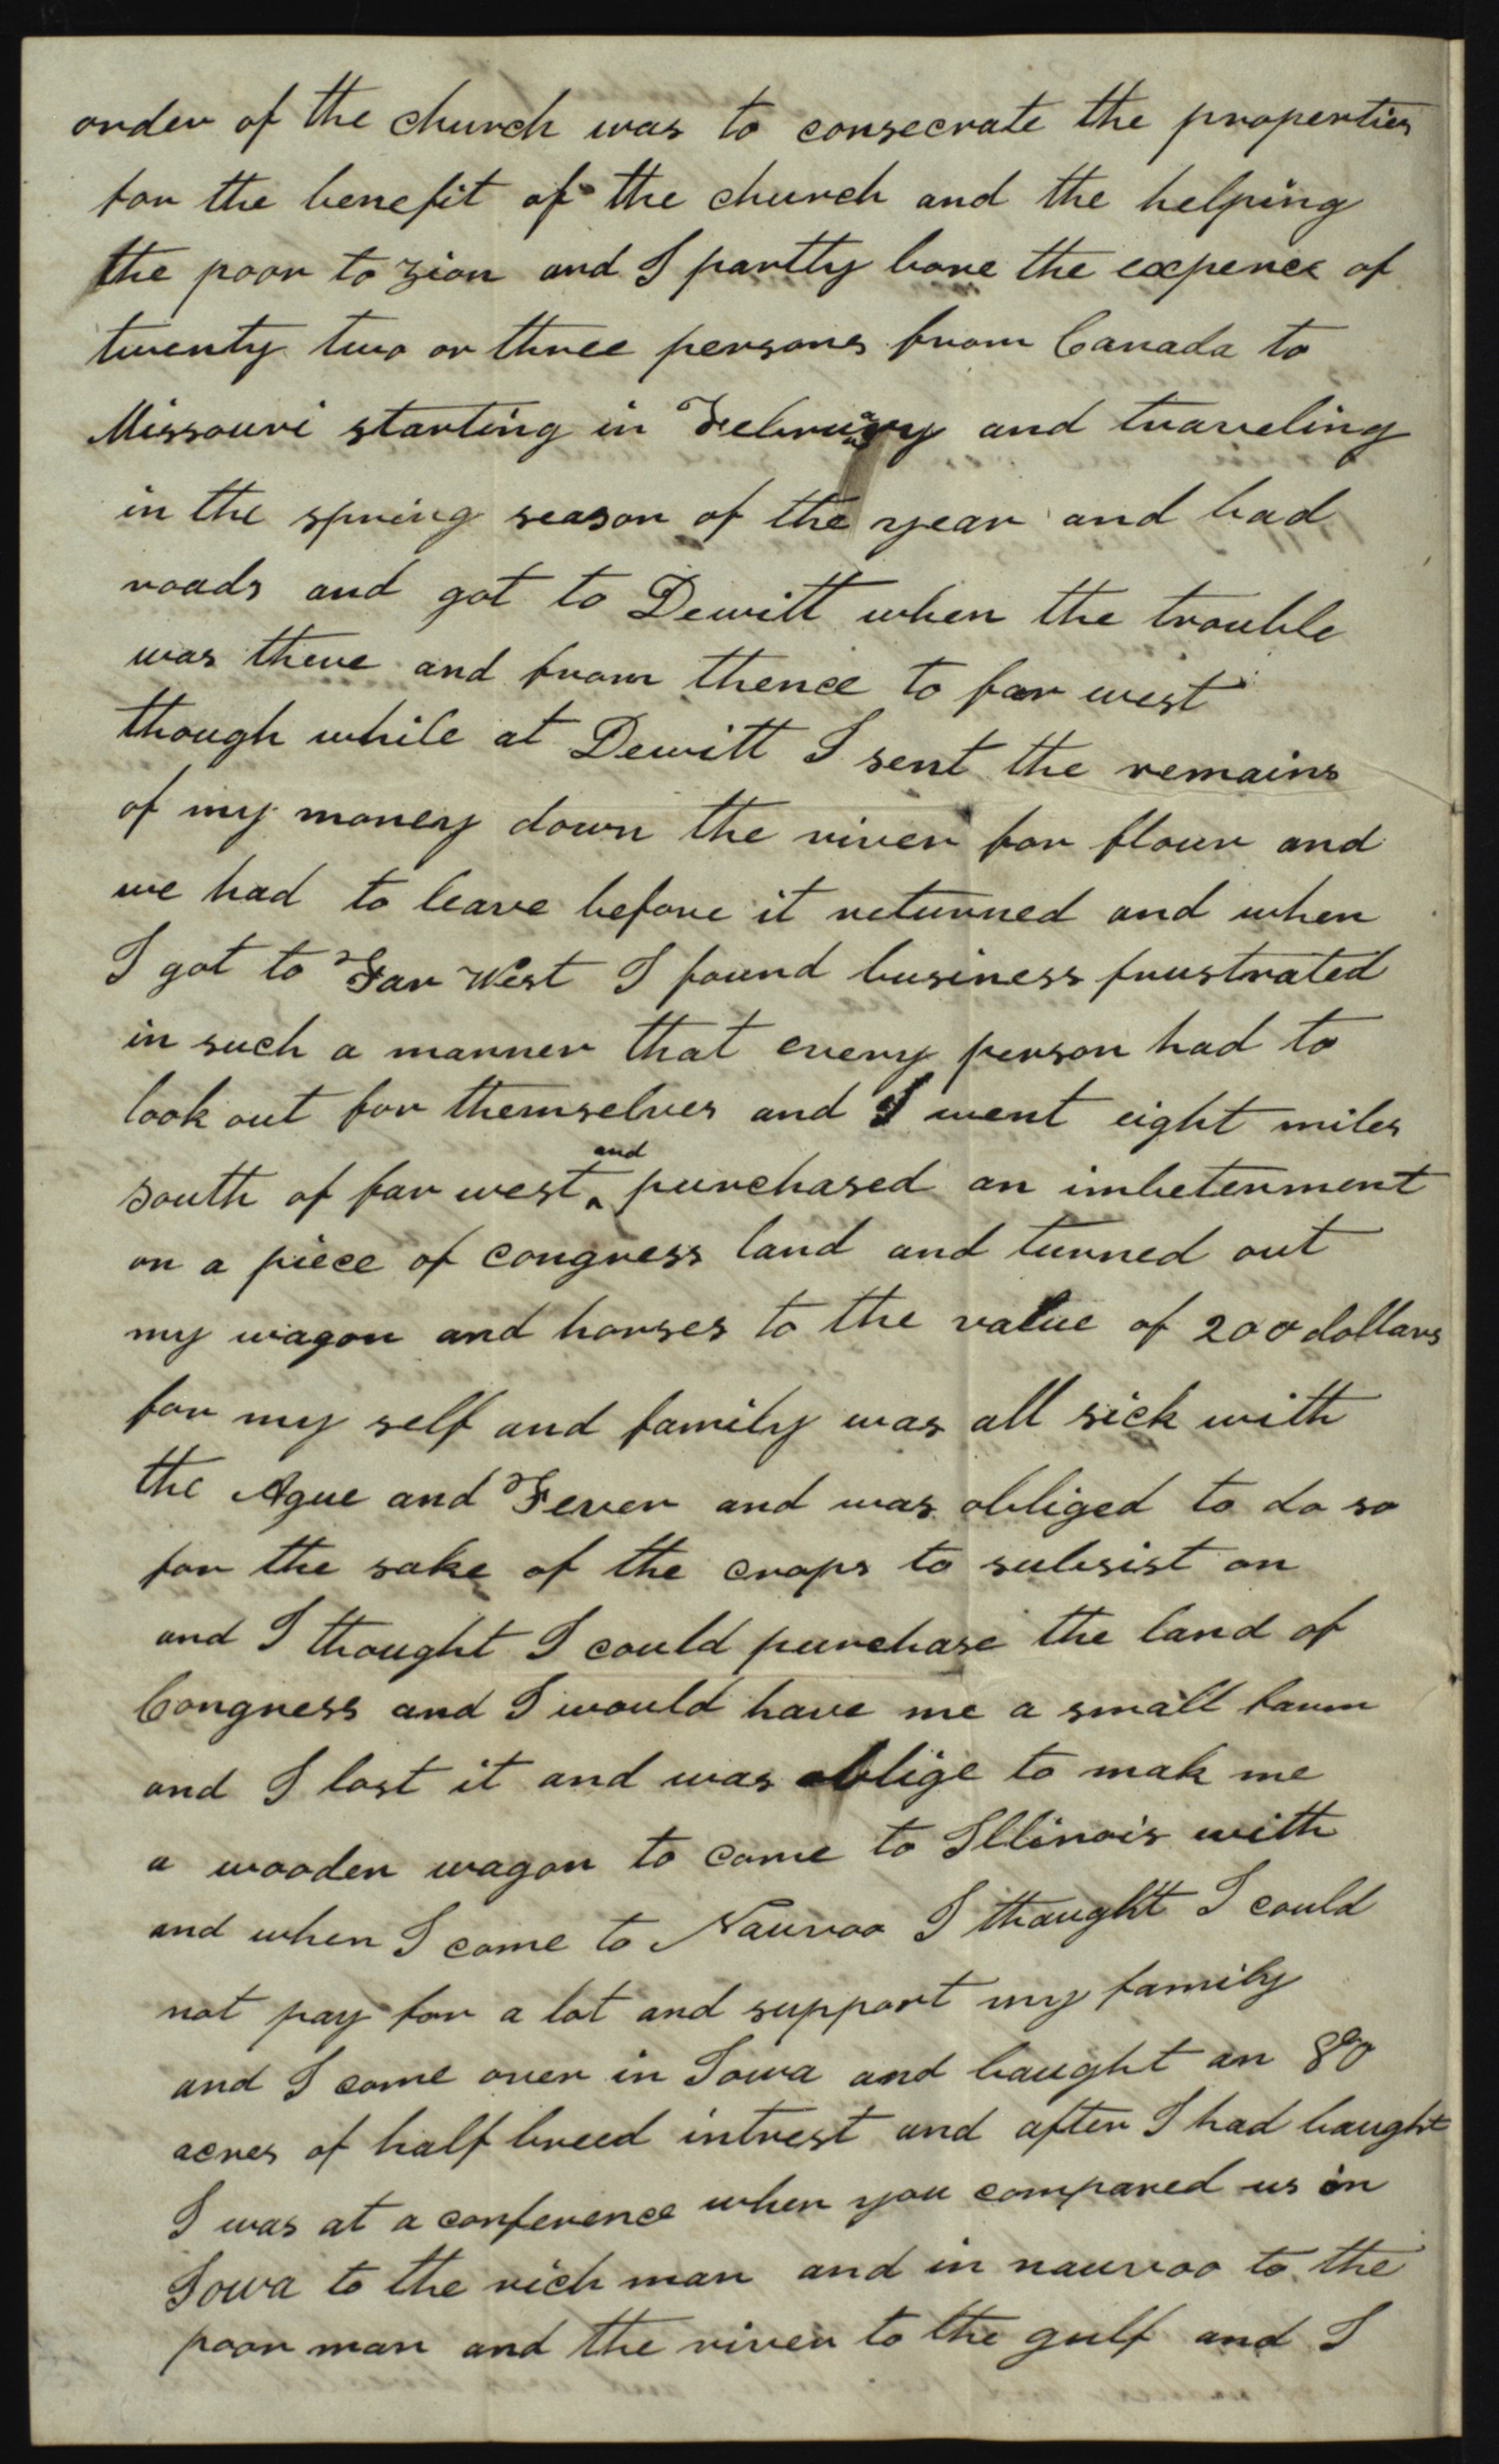 order of the church was to consecrate the properties
for the benefit of the church and the helping
the poor to zion and I partly bore the expence of
twenty two or three persons from Canada to
Missouri starting in February and traveling
in the spring season of the year and bad
roads and got to Dewitt when the trouble
was there and from thence to far west
though while at Dewitt I sent the remains
of my money down the river for flour and
we had to leave before it returned and when
I got to Far West I found business frustrated
in such a manner that every person had to
look out for themselves and I went eight miles
south of far west and purchased an imbeterment
on a piece of congress land and turned out
my wagon and horses to the value of 200 dollars
for my self and family was all sick with
the Ague and Fever and was obliged to do so
for the sake of the crops to subsist on
and I thought I could purchase the land of
Congress and I would have me a small farm
and I lost it and was oblige to mak me
a wooden wagon to come to Illinois with
and when I come to Nauvoo I thought I could
not pay for a lot and support my family
and I come over in Iowa and baught an 80
acres of half breed intrest and after I had baught
I was at a conference when you compared us in
Iowa to the rich man and in nauvoo to the
poor man and the river to the gulf and I